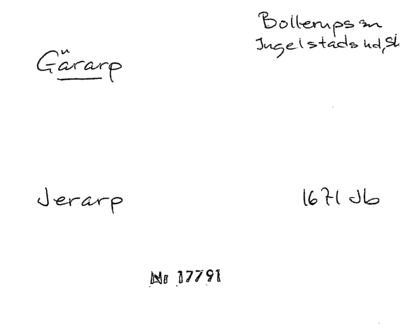 Bollerups sn
Ingelstads hd, Sk
Gärarp
Jerarp 1671 Jb
Nr 17791